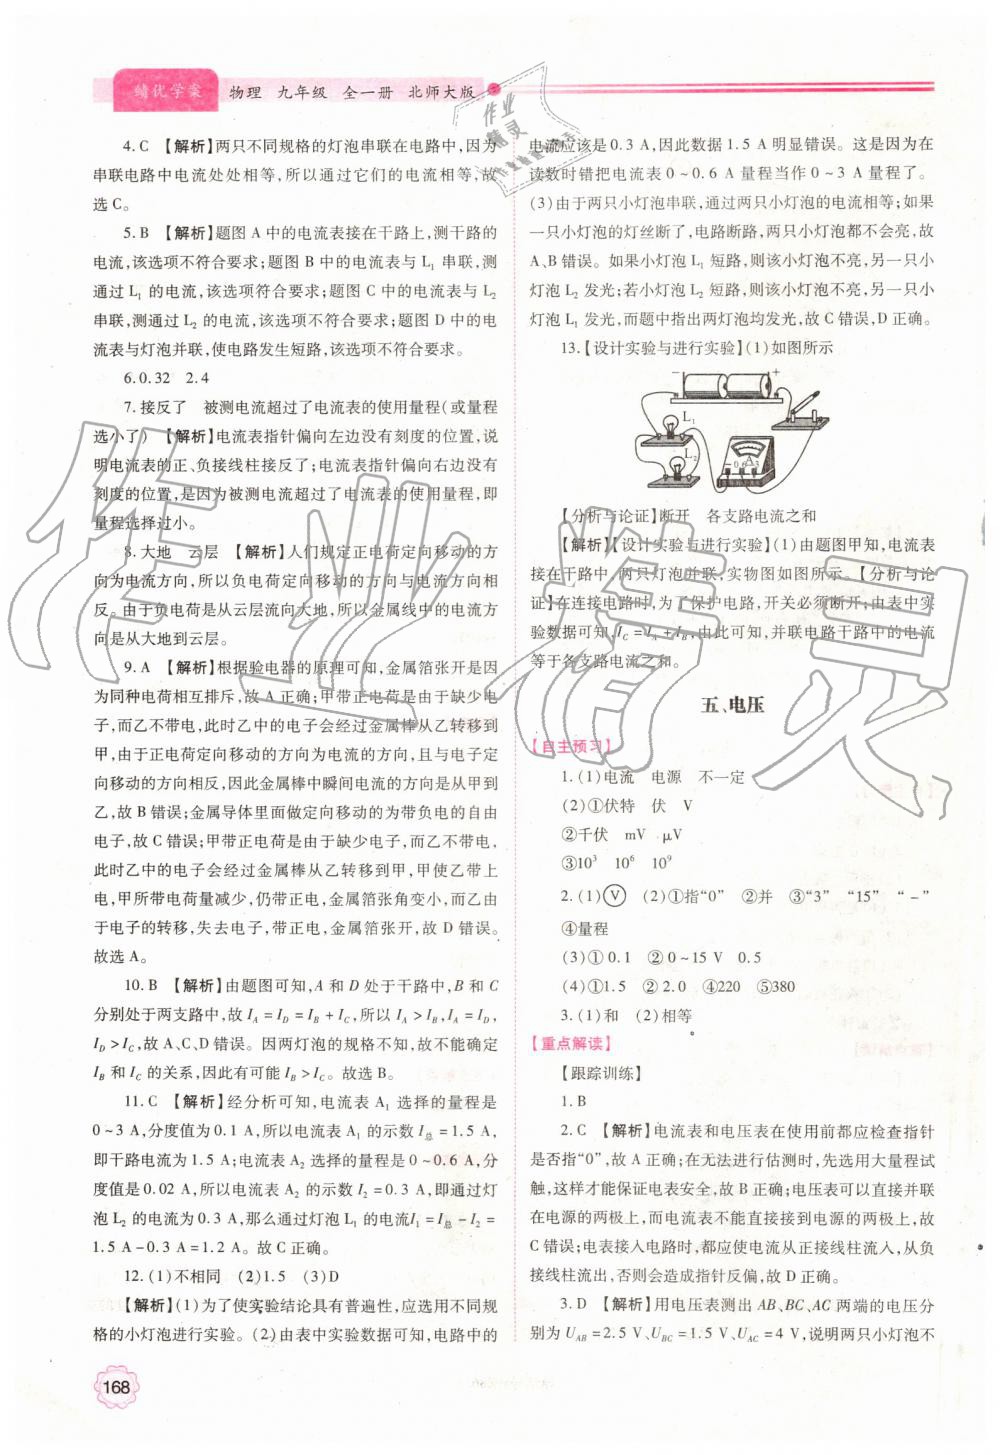 绩优学案 物理 九年级 全一册 北师大版
4.C 【解析】两只不同规格的灯泡串联在电路中,因为
串联电路中电流处处相等,所以通过它们的电流相等,故
选C。
5.B 【解析】题图 A 中的电流表接在干路上,测干路的
电流,该选项不符合要求;题图 B 中的电流表与 L₁ 串联,测
通过 L₁ 的电流,该选项符合要求;题图 C 中的电流表与 L₂
串联,测通过 L₂ 的电流,该选项不符合要求;题图 D 中的电
流表与灯泡并联,使电路发生短路,该选项不符合要求。
6.0.32 2.4
7.接反了 被测电流超过了电流表的使用量程(或量程
选小了) 【解析】电流表指针偏向左边没有刻度的位置,说
明电流表的正、负接线柱接反了;电流表指针偏向右边没有
刻度的位置,是因为被测电流超过了电流表的使用量程,即
量程选择过小。
8.大地 云层 【解析】人们规定正电荷定向移动的方
向为电流方向,所以负电荷定向移动的方向与电流方向相
反。由于负电荷是从云层流向大地,所以金属线中的电流方
向是从大地到云层。
9.A 【解析】根据验电器的原理可知,金属箔张开是因
为同种电荷相互排斥,故 A 正确;甲带正电荷是由于缺少电
子,而乙不带电,此时乙中的电子会经过金属棒从乙转移到
甲,由于正电荷定向移动的方向为电流的方向,且与电子定
向移动的方向相反,因此金属棒中瞬间电流的方向是从甲到
乙,故 B 错误;金属导体里面做定向移动的为带负电的自由
电子,故 C 错误;甲带正电荷是由于缺少电子,而乙不带电,
此时乙中的电子会经过金属棒从乙转移到甲,甲使乙带上
电,甲所带电荷量变少,仍带正电,金属箔张角变小,而乙由
于电子的转移,失去电子,带正电,金属箔张开,故 D 错误。
故选 A。
10.B 【解析】由题图可知,A 和 D 处于干路中,B 和 C
分别处于两支路中,故 I_A = I_D = I_B + I_C,所以 I_A > I_B,I_A = I_D,
I_D > I_C,故 A、C、D 错误。因两灯泡的规格不知,故无法确定
I_B 和 I_C 的关系,因此有可能 I_B > I_C。故选 B。
11.C 【解析】经分析可知,电流表 A₁ 选择的量程是
0~3 A,分度值为 0.1 A,所以电流表 A₁ 的示数 I总 = 1.5 A,
即干路电流为 1.5 A;电流表 A₂ 选择的量程是 0~0.6 A,分
度值是 0.02 A,所以电流表 A₂ 的示数 I₂ = 0.3 A,即通过灯
泡 L₂ 的电流为 0.3 A,那么通过灯泡 L₁ 的电流I₁ = I总 - I₂ =
1.5 A-0.3 A=1.2 A。故 C 正确。
12.(1)不相同 (2)1.5 (3)D
【解析】(1)为了使实验结论具有普遍性,应选用不同规
格的小灯泡进行实验。(2)由表中实验数据可知,电路中的
168
电流应该是 0.3 A,因此数据 1.5 A 明显错误。这是因为在
读数时错把电流表 0~0.6 A 量程当作 0~3 A 量程了。
(3)由于两只小灯泡串联,通过两只小灯泡的电流相等;如果
一只小灯泡的灯丝断了,电路断路,两只小灯泡都不会亮,故
A、B 错误。如果小灯泡 L₁ 短路,则该小灯泡不亮,另一只小
灯泡 L₂ 发光;若小灯泡 L₂ 短路,则该小灯泡不亮,另一只小
灯泡 L₁ 发光,而题中指出两灯泡均发光,故 C 错误,D 正确。
13.【设计实验与进行实验】(1)如图所示
- +
L₁
L₂
- 0.6 3
A
【分析与论证】断开 各支路电流之和
【解析】【设计实验与进行实验】(1)由题图甲知,电流表
接在干路中,两只灯泡并联,实物图如图所示。【分析与论
证】在连接电路时,为了保护电路,开关必须断开;由表中实
验数据可知,I_C = I_A + I_B,由此可知,并联电路干路中的电流
等于各支路电流之和。
五、电压
【自主预习】
1.(1)电流 电源 不一定
(2)①伏特 伏 V
②千伏 mV μV
③10³ 10⁶ 10⁹
2.(1)Ⓥ (2)①指“0” ②并 ③“3” “15” “-”
④量程
(3)①0.1 ②0~15 V 0.5
(4)①1.5 ②2.0 ④220 ⑤380
3.(1)和 (2)相等
【重点解读】
【跟踪训练】
1.B
2.C 【解析】电流表和电压表在使用前都应检查指针
是否指“0”,故 A 正确;在无法进行估测时,先选用大量程试
触,这样才能保证电表安全,故 B 正确;电压表可以直接并联
在电源的两极上,而电流表不能直接接到电源的两极上,故 C
错误;电表接入电路时,都应使电流从正接线柱流入,从负
接线柱流出,否则会造成指针反偏,故 D 正确。
3.D 【解析】用电压表测出 AB、BC、AC 两端的电压分
别为 U_AB = 2.5 V、U_BC = 1.5 V、U_AC = 4 V,说明两只小灯泡不
作业精灵